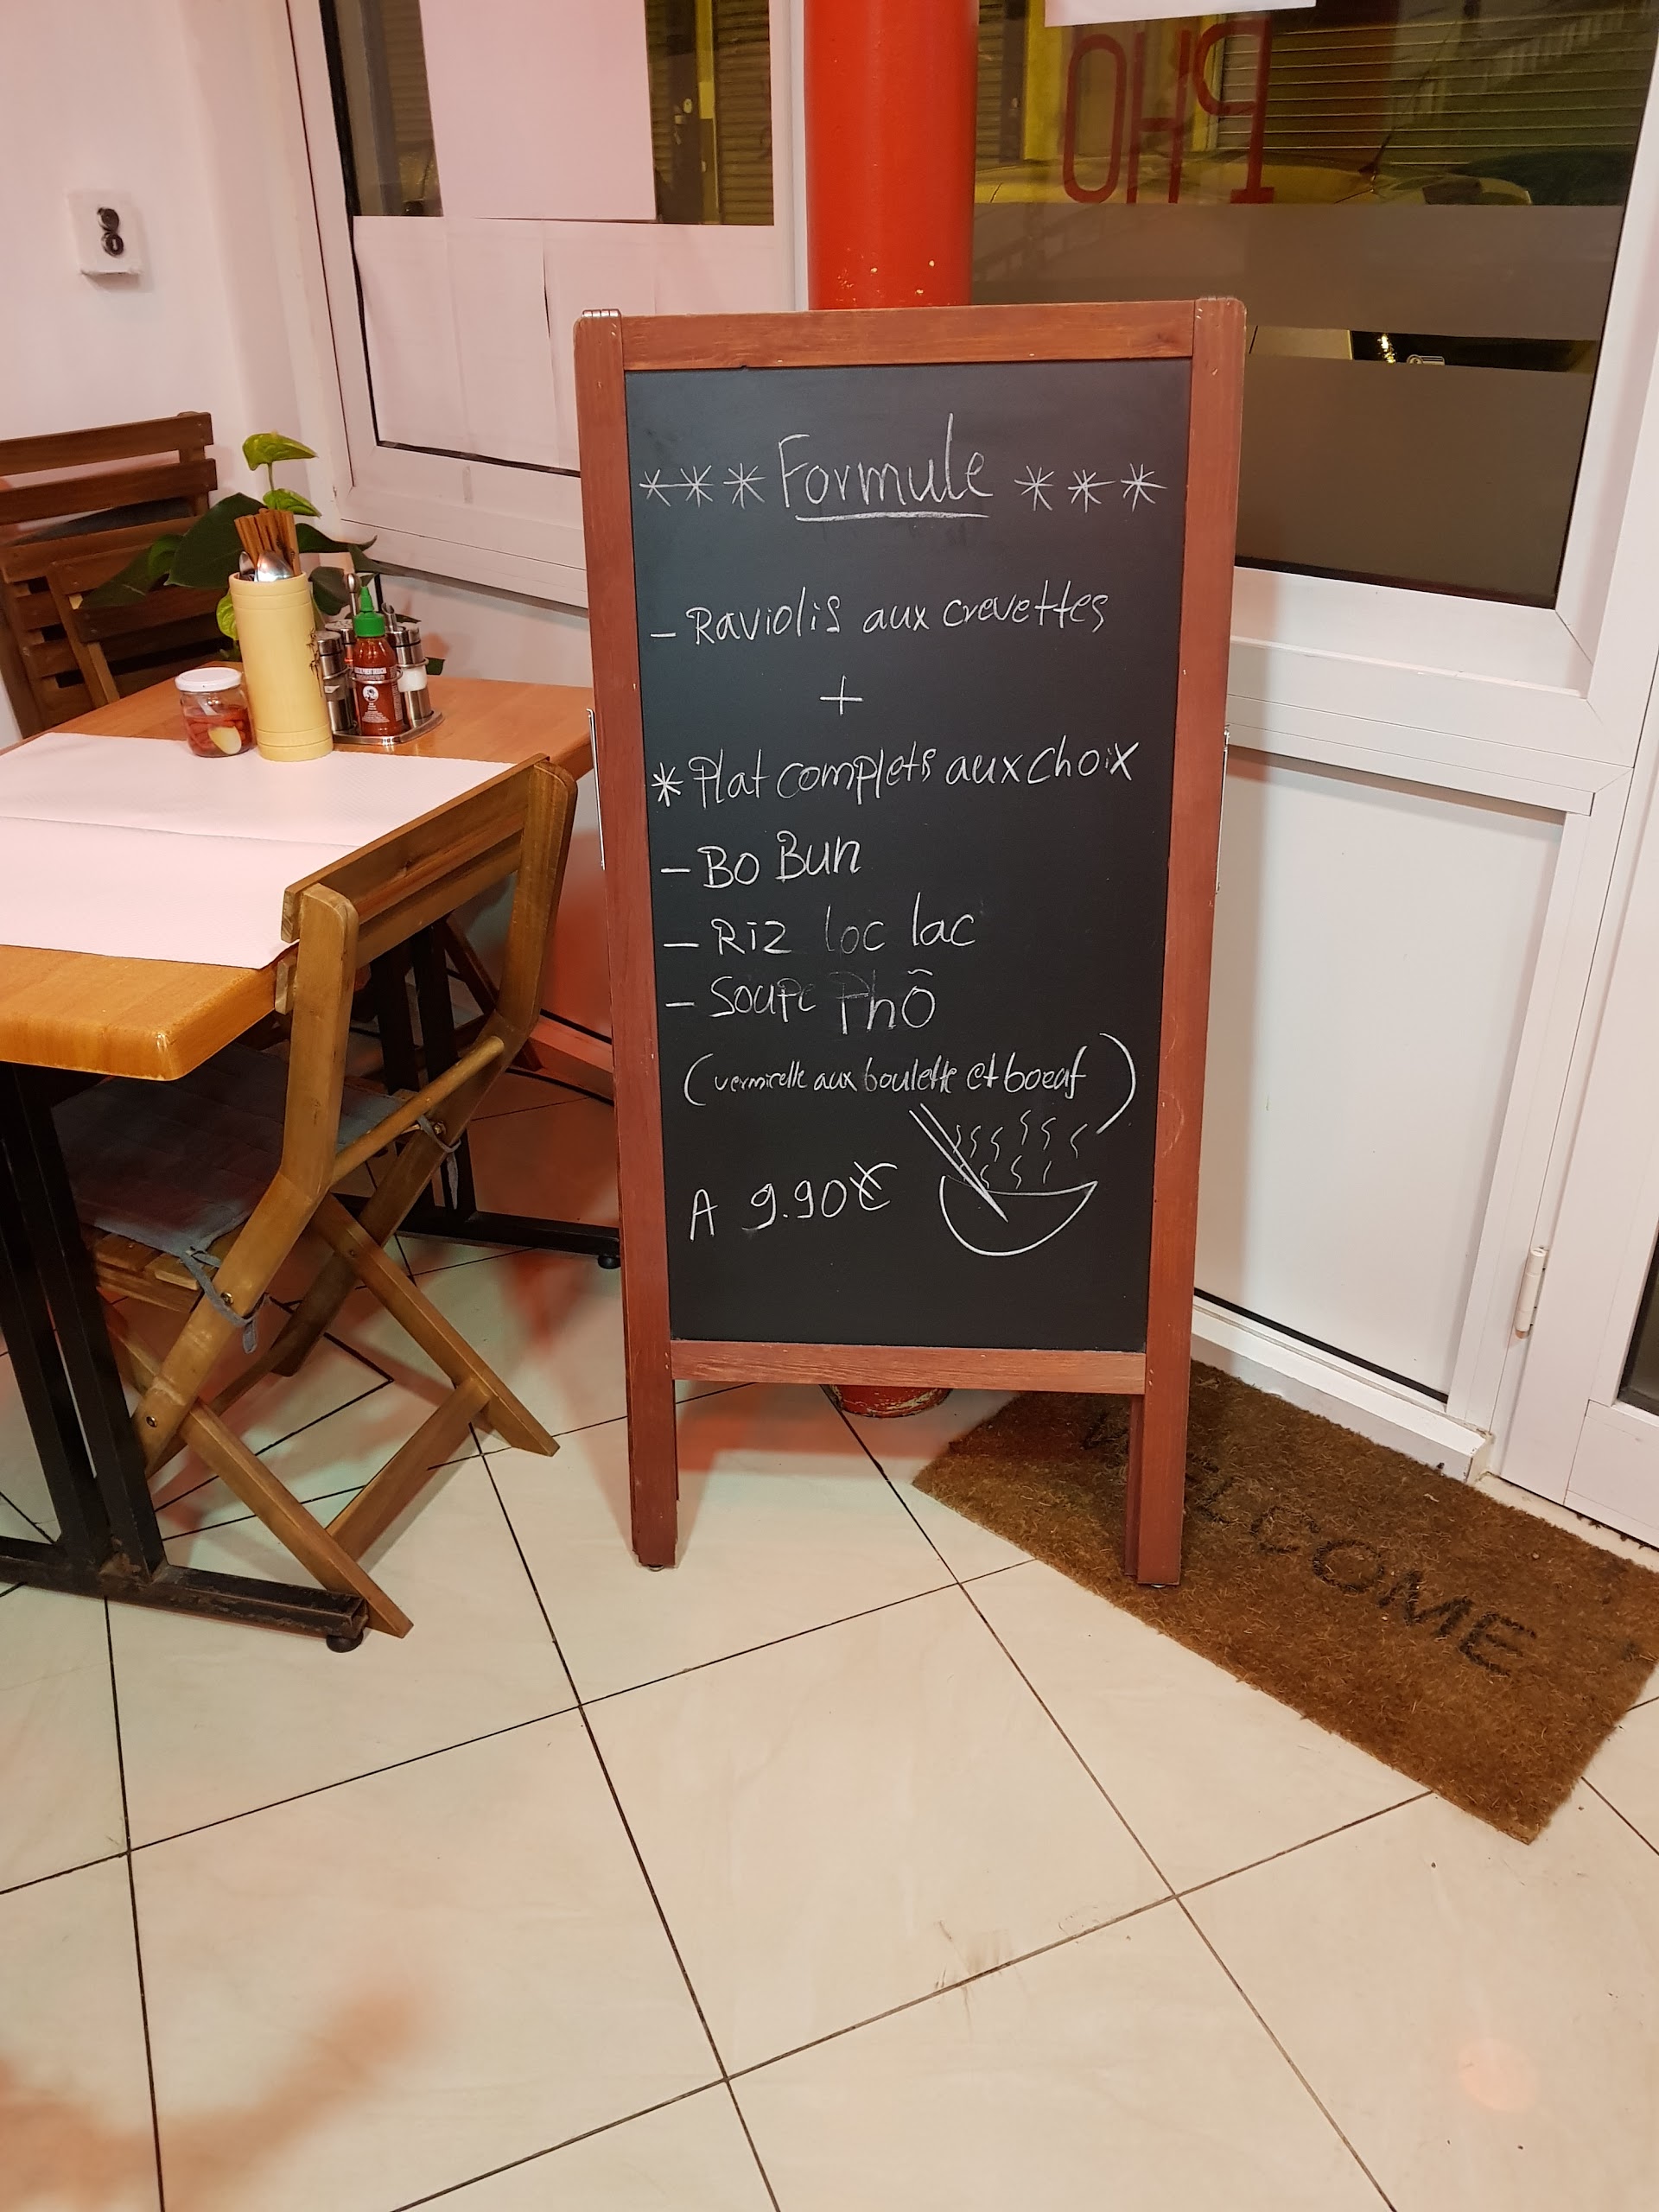 PHO
*** Formule ***
- Raviolis aux crevettes
+
* Plat complets aux choix
- Bo Bun
- Riz loc lac
- Soupe Phô
(vermicelle aux boulette et boeuf)
A 9.90€
WELCOME